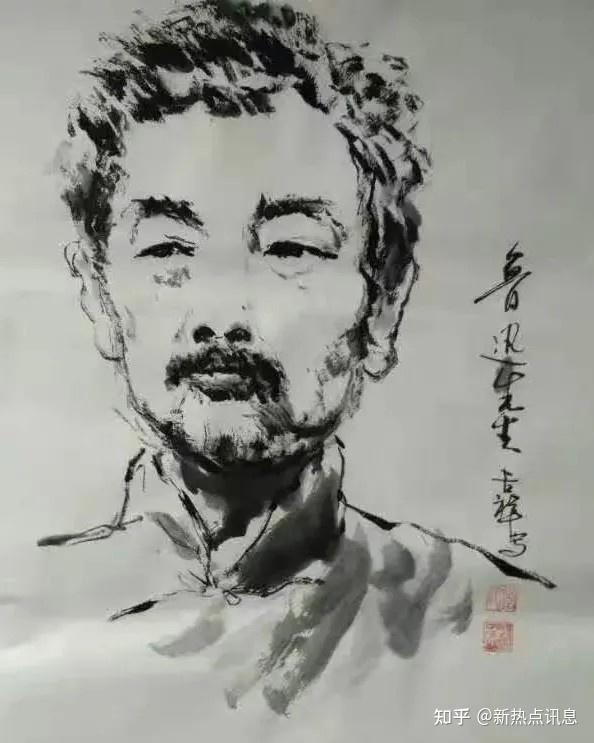 鲁迅先生 吉祥写
知乎 @新热点讯息